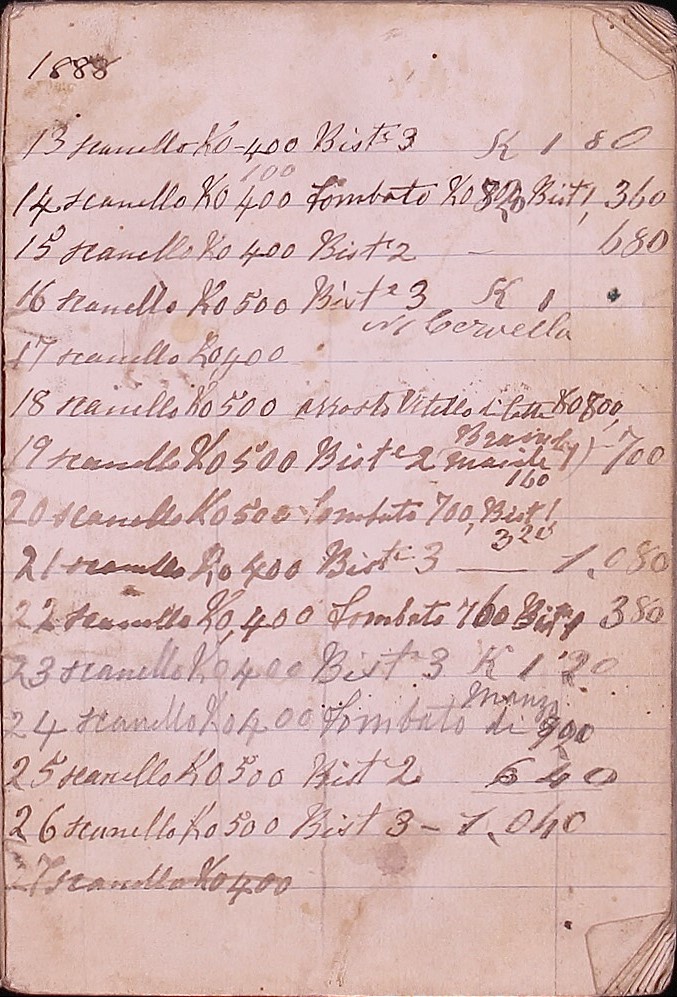 1888
13 scanello Ko-400 Bist.e 3 K 1 80
100
14 scanello Ko 400 Lombato Ko Bist 1, 360
15 scanello Ko 400 Biste 2 - 680
16 scanello Ko 500 Biste 3 K 1
N1 Cervella
17 scanello Ko 400
18 scanello Ko 500 arrosto Vitello di latte Ko 800,
19 scanello Ko 500 Biste 2 700
160
20 scanello Ko 500 Lombato 700, Bist 1,
320
21 scanello Ko 400 Biste 3 — 1.080
22 scanello Ko, 400 Lombato 760 Bist 1 380
23 scanello Ko 400 Biste 3 K 1 20
Manzo
24 scanello Ko 400 Lombato di 900
25 scanello Ko 500 Biste 2 640
26 scanello Ko 500 Bist 3 - 1.040
27 scanello Ko 400